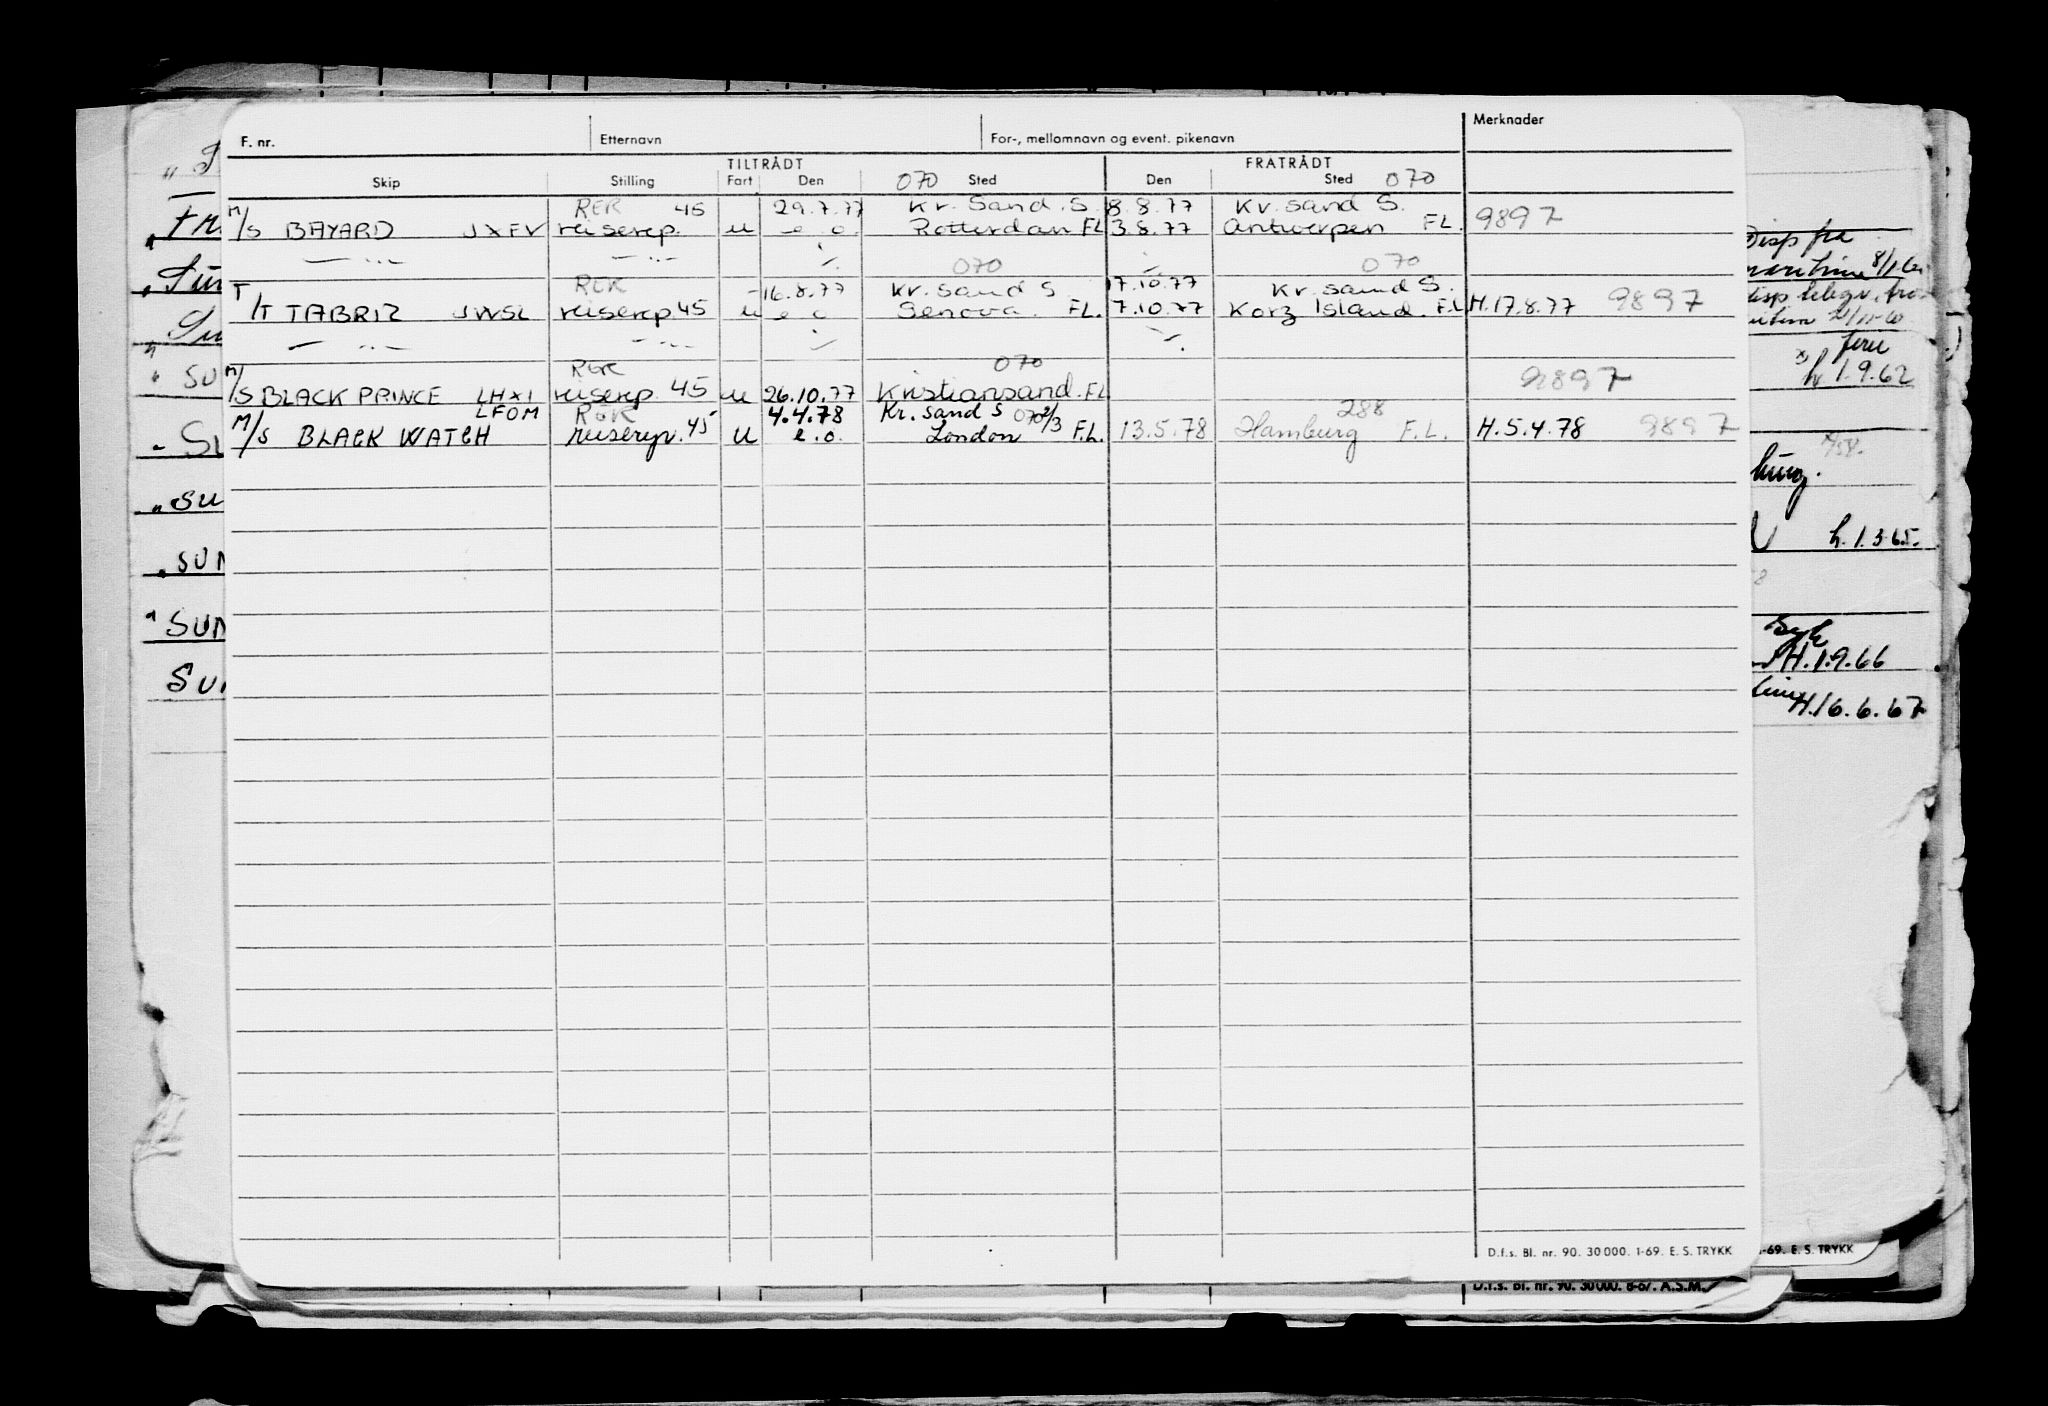 F. nr. Etternavn For-, mellomnavn og event. pikenavn Merknader
TILTRÅDT FRATRÅDT
Skip Stilling Fart Den 070 Sted Den Sted 070
RER 45 29.7.77 Kr. Sand. S 8.8.77 Kr. sand S.
M/S BAYARD JXFV reiserep. u e o. Rotterdam FL 3.8.77 Antwerpen FL. 9897
070 070
RER 16.8.77 Kr. sand S 17.10.77 Kr. sand S.
T/T TABRIZ JWSL reiserep. 45 u e o Genova. FL. 7.10.77 Korg Island. FL H.17.8.77 9897
RER 070
M/S BLACK PRINCE LHXI reiserep. 45 u 26.10.77 Kristiansand. FL 9897
LFOM RER 4.4.78 Kr. sand S 070 2/3 288
M/S BLACK WATCH reiserep. 45 u e.o. London F.L. 13.5.78 Hamburg F.L. H.5.4.78 9897
Disp fra
8/1-60
21/11-60
h 1.9.62
h. 1.3.65.
Syk
H.1.9.66
H.16.6.67
SU
SUN
SUN
SUN
D.f.s. Bl. nr. 90. 30 000. 1-69. E. S. TRYKK
-69. E. S. TRYKK
D.f.s. Bl. nr. 90. 30 000. 8-67. A.S.M.